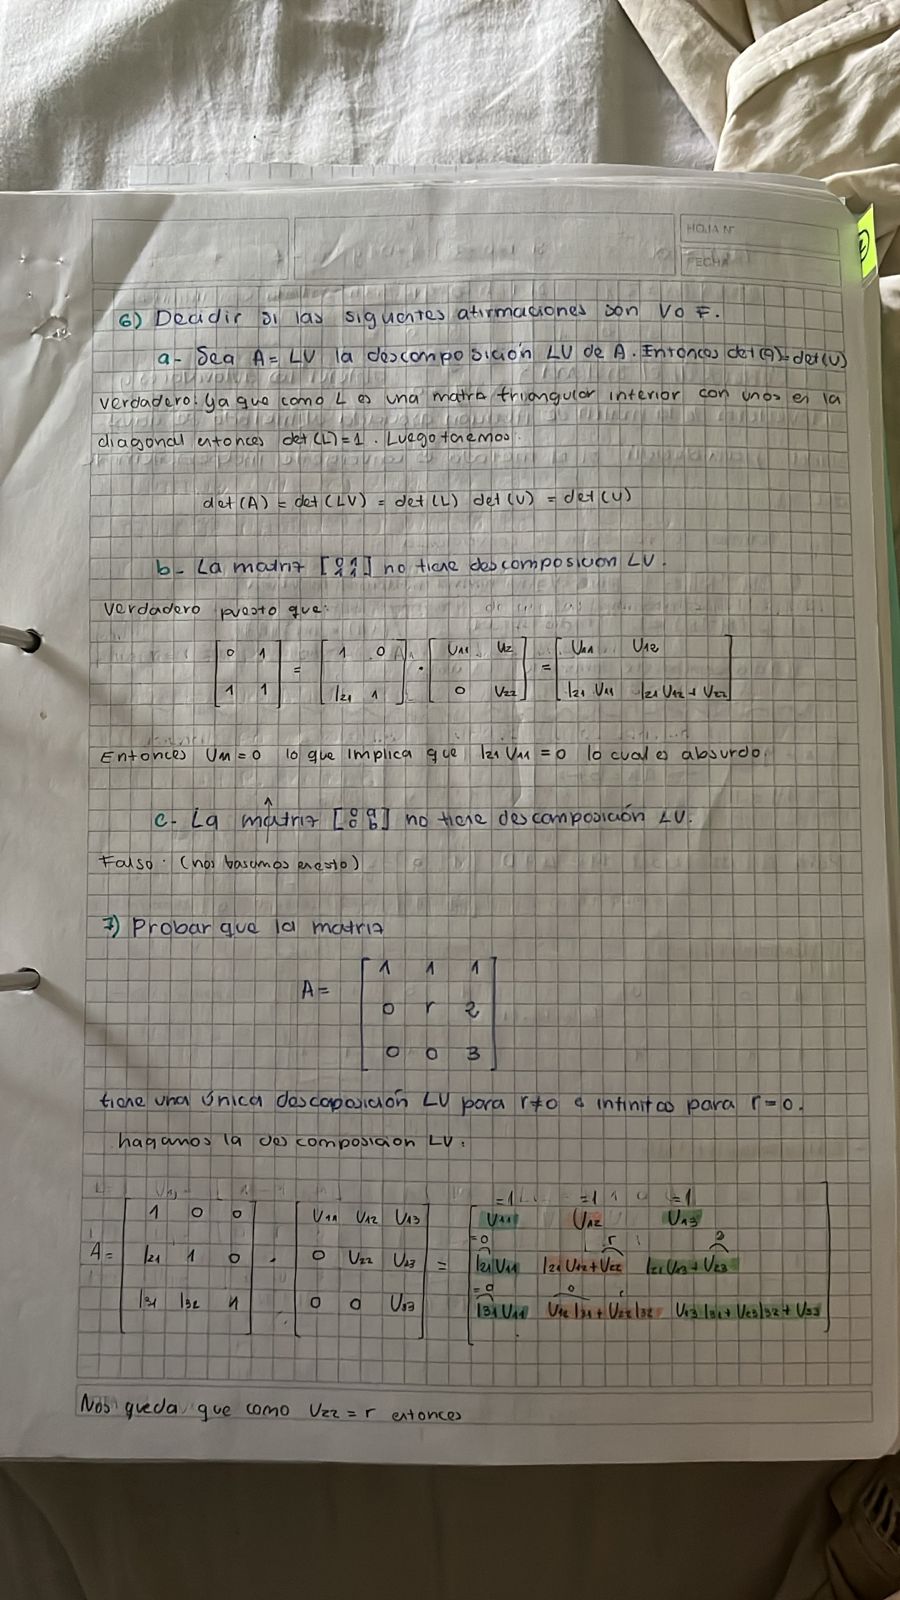 HOJA N°
FECHA
6) Decidir si las siguientes afirmaciones son V o F.
a- Sea A = LU la descomposición LU de A. Entonces det(A) = det(U)
Verdadero: ya que como L es una matriz triangular inferior con unos en la
diagonal entonces det (L) = 1. Luego tenemos:
det(A) = det(LU) = det(L) det(U) = det(U)
b- La matriz [0 1 1 1] no tiene descomposicion LU.
Verdadero puesto que:
[0 1] = [1 0] · [U11 U12] = [U11 U12]
[1 1] [l21 1] [0 U22] [l21 U11 l21 U12 + U22]
Entonces U11 = 0 lo que implica que l21 U11 = 0 lo cual es absurdo.
c- La matriz [0 a 0 b] no tiene descomposición LU.
Falso: (nos basamos en esto)
7) Probar que la matriz
1 1 1
A = 0 r 2
0 0 3
tiene una única descoposición LU para r≠0 e infinitas para r = 0.
hagamos la descomposicion LU:
=1 =1 =1
1 0 0 U11 U12 U13 U11 U12 U13
=0 r 2
A = l21 1 0 · 0 U22 U23 = l21 U11 l21 U12 + U22 l21 U13 + U23
=0 0
l31 l32 1 0 0 U33 l31 U11 U12 l31 + U22 l32 U13 l31 + U23 l32 + U33
Nos queda que como U22 = r entonces